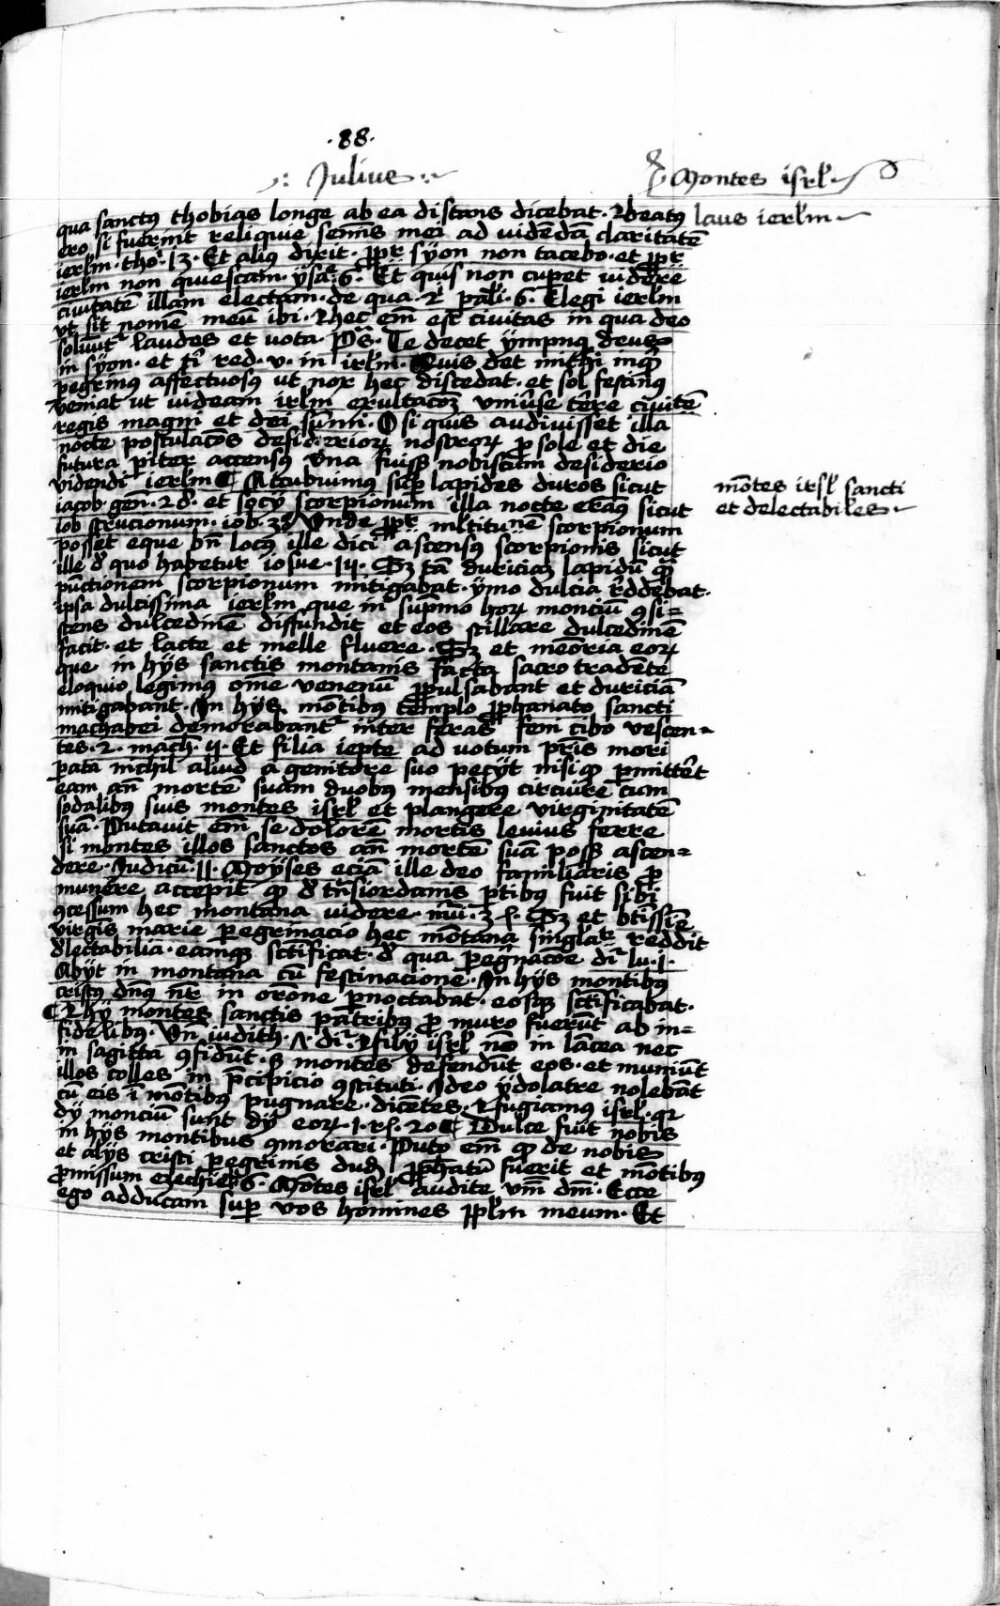 .88.
Julius
Montes isrl
qua sanctus thobias longe ab ea distans dicebat. beatus
laus ierlm
ero si fuerint reliquie seminis mei ad videndam claritatem
ierlm. tho. 13. Et alius dixit. ppt syon non tacebo. et ppt
ierlm non quiescam. ysa. 6. Et quis non cuperet videre
civitatem illam electam. de qua. 2. pali. 6. Elegi ierlm
ut sit nomen meum ibi. hec enim est civitas in qua deo
solvuntur laudes et vota. Ps. Te decet ympnus deus
in syon. et ti red. v. in irlm. Quis det michi inquam
pegrinus affectuosus ut nox hec discedat. et sol festinus
veniat ut videam irlm exultacionem universe terre civitatem
regis magni et dei summi. O si quis audivisset illa
nocte postulaciones desideriorum nostrorum pro sole et die
futura pariter accensus una fuisset nobiscum desiderio
videndi ierlm Accubuimus super lapides duros sicut
montes irsl sancti
iacob. gen. 28. et socy scorpionum illa nocte eramus sicut
et delectabiles
iob strucionum. iob. 30 Unde ppt multitudinem scorpionum
posset eque bn locus ille dici ascensus scorpionis sicut
ille de quo habetur iosue. 15. Sed tantam duriciam lapidum quam
punctionem scorpionum mitigabat. ymo dulcia reddebat.
ipsa dulcissima ierlm que in supremo horum moncium consi=
stens dulcedinem diffundit et eos stillare dulcedinem
facit. et lacte et melle fluere. Sed et memoria eorum
que in hys sanctis montanis facta sacro tradente
eloquio legimus omne venenum propulsabant et duriciam
mitigabant. In hys montibus templo prophanato sancti
machabei demorabantur inter feras feni cibo vescen=
tes. 2. mach. 5. Et filia iepte ad votum patris mori
parata nichil aliud a genitore suo peciit nisi quod permitteret
eam ante mortem suam duobus mensibus circuire cum
sodalibus suis montes isrl et plangere virginitatem
suam. Putavit enim se dolorem mortis levius ferre
si montes illos sanctos ante mortem suam posset ascen=
dere. Judicum. 11. Moyses eciam ille deo familiaris pro
munere accepit quod de transiordanis partibus fuit sibi
concessum hec montana videre. Sed et beatissime
virginis marie peregrinacio hec montana singulariter reddit
delectabilia. eamque sanctificat. de qua peregrinacione dicitur lu. 1.
Abyt in montana cum festinacione. In hys montibus
cristus dominus noster in oratione pernoctabat. eosque sanctificabat.
hy montes sanctis patribus pro muro fuerunt ab in=
fidelibus. Unde iudith. dicitur. filii isrl non in lancea nec
in sagitta confidunt. sed montes defendunt eos. et muniunt
illos colles in precipicio constituti. Ideo ydolatre nolebant
cum eis in montibus pugnare. dicentes. fugiamus isrl. quia
dy moncium sunt dy eorum. 20 Dulce fuit nobis
in hys montibus commorari. Puto enim quod de nobis
et alys cristi peregrinis dudum prophetatum fuerit et montibus
promissum ezechielis. Montes isrl audite verbum domini. Ecce
ego adducam super vos homines pplm meum. Et